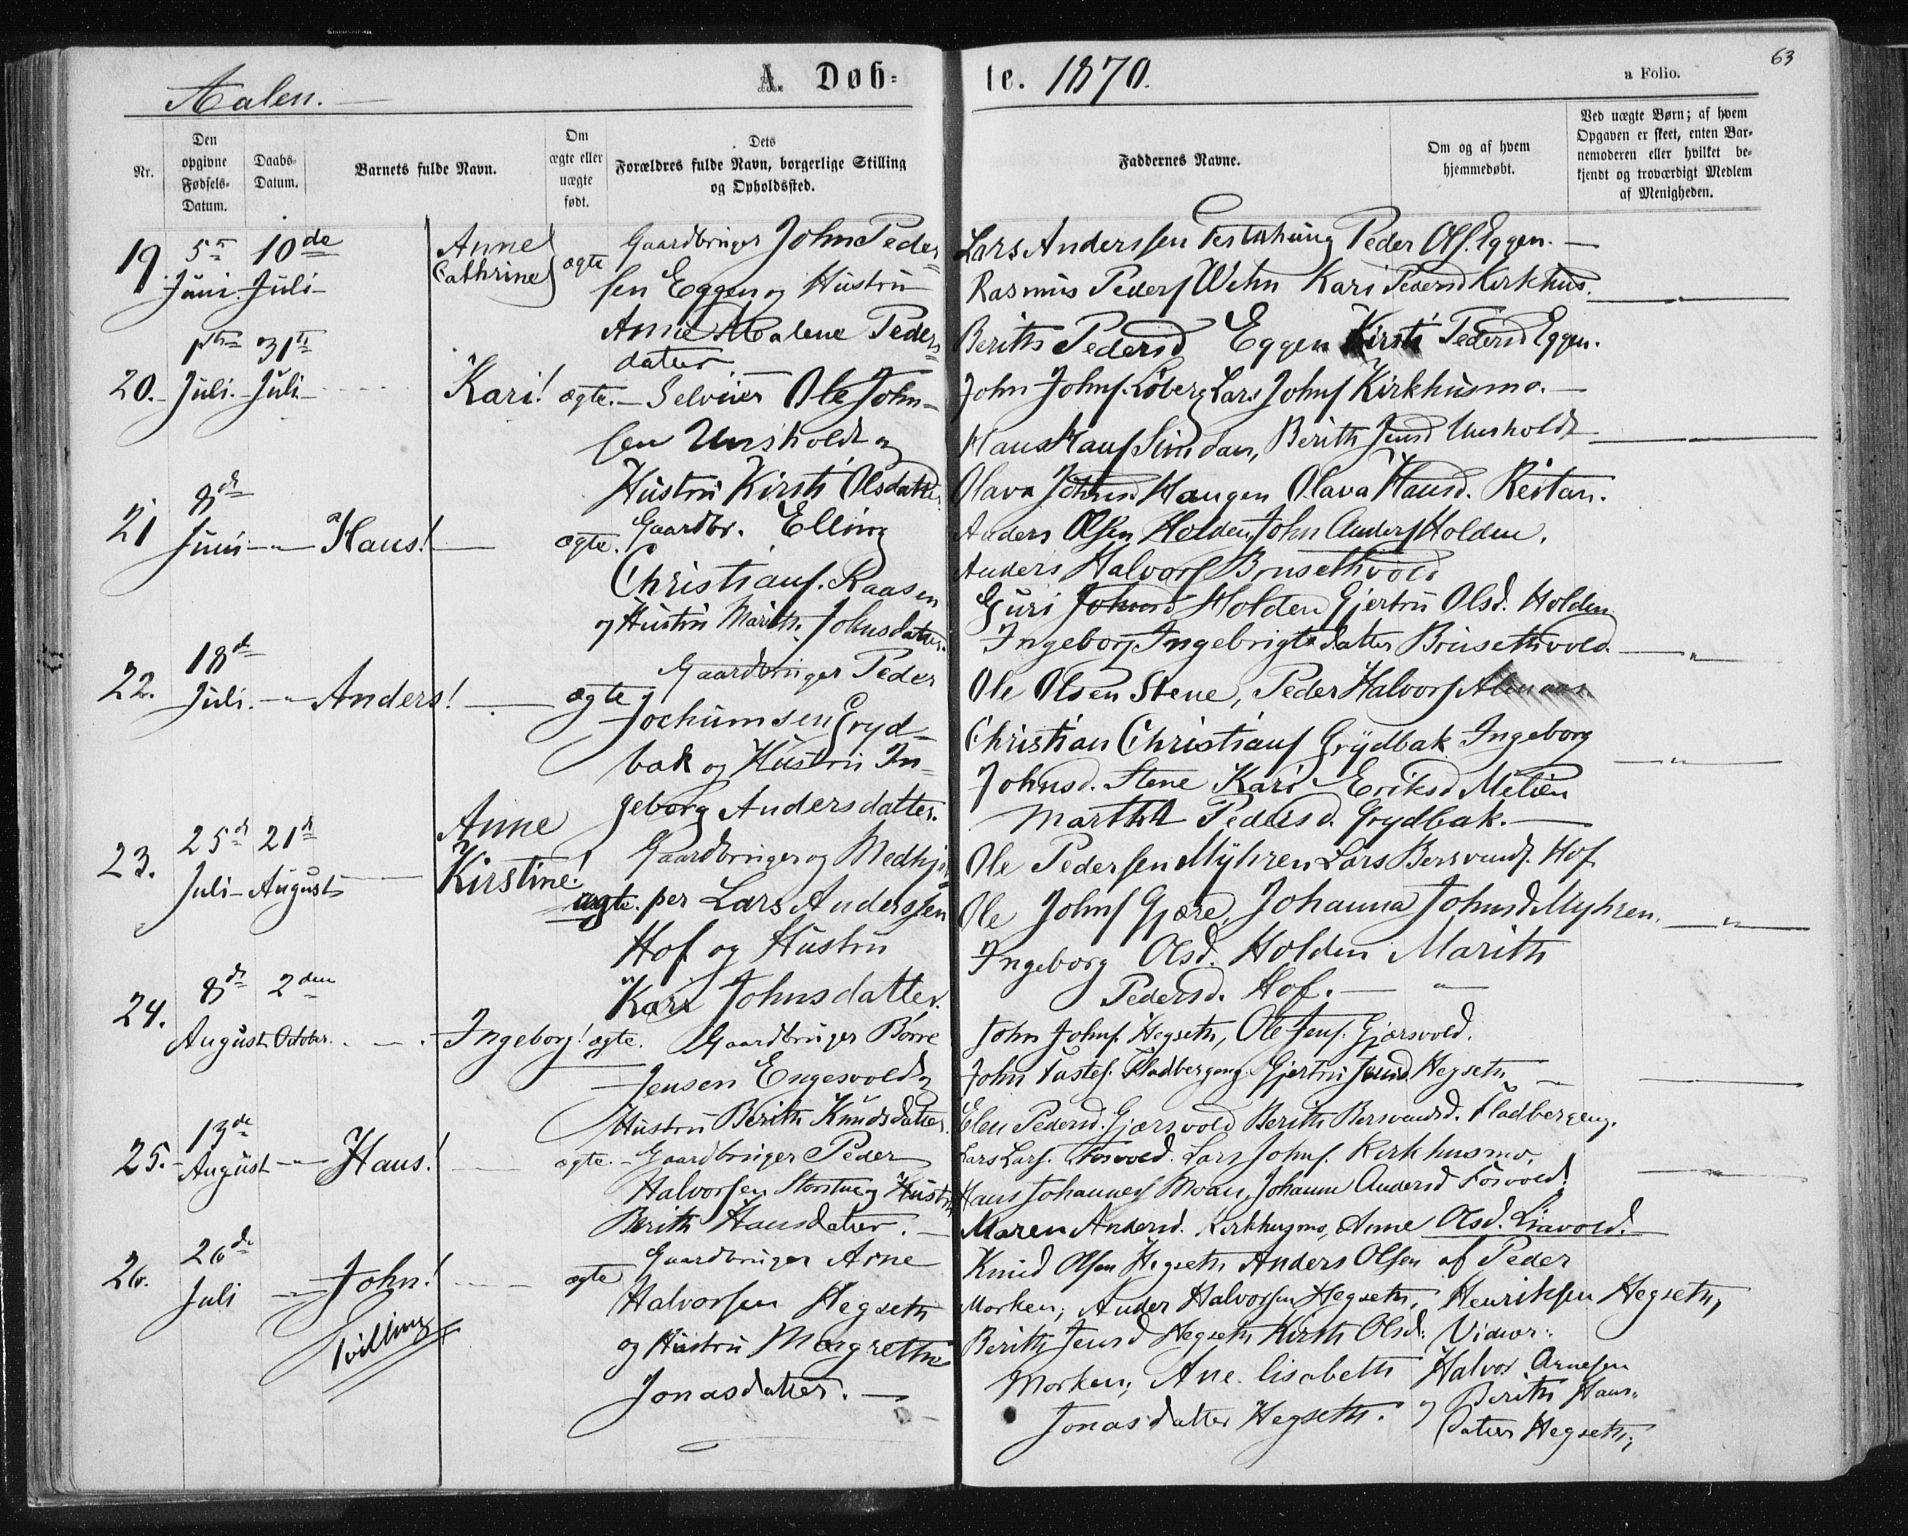 63
Aalen.
A. Døb-
te. 1870.
a Folio.
Nr.
Den opgivne Fødsels-Datum.
Daabs-Datum.
Barnets fulde Navn.
Om ægte eller uægte født.
Dets Forældres fulde Navn, borgerlige Stilling og Opholdssted.
Faddernes Navne.
Om og af hvem hjemmedøbt.
Ved uægte Børn; af hvem Opgaven er skeet, enten Barnemoderen eller hvilket bekjendt og troværdigt Medlem af Menigheden.
19. 5te Juni. 10de Juli Anne Cathrine ægte
Gaardbruger John Peder-
sen Eggen og Hustru
Anne Malene Peders-
datter.
Lars Anderssen Peder Ols. Eggen.
Rasmus Peders Wehn Kari Pedersd Kirkhus.
Berith Pedersd Eggen Kirsti Pedersd Eggen.
20. 1ste Juli. 31te Juli Kari! ægte.
Selveier Ole John-
sen Unsholdt og
Hustru Kirsti Olsdatter
John Johns. Løberg Lars Johns Kirkhusmo.
Hans Hans Berith Jensd Unsholdt
Olava Johnsd. Haugen Olava Hansd. Reitan.
21 8de Juni " Hans! ægte.
Gaardbr. Elling
Christians. Raasen
og Hustru Marith Johnsdatter.
Anders Olsen Holden, John Anders Holden.
Anders Halvors Brusethvold
Guri Johnsd Holden Gjertru Olsd. Holden
Ingeborg Ingebrigtsdatter Brusethvold.
22. 18de Juli. " Anders! ægte
Gaardbruger Peder
Jochumsen Gryd-
bak og Hustru In-
geborg Andersdatter.
Ole Olsen Stene, Peder Halvors
Christian Christians Grydbak Ingeborg
Johnsd. Stene Kari Eriksd Melien
Martha Pedersd. Grydbak.
23. 25de Juli 21de August Anne Kirstine! ægte.
Gaardbruger og Medhjæl-
per Lars Anderssen
Hof og Hustru
Kari Johnsdatter.
Ole Pedersen Myhren Lars Bersvends. Hof
Ole Johns Gjære, Johanna Johnsd Myhren.
Ingeborg Olsd. Holden Marith
Pedersd. Hof.
24. 8de August 2den October Ingeborg! ægte.
Gaardbruger Børre
Jensen Engesvold og
Hustru Berith Knudsdatter.
John Johns. Hegseth, Ole Jens. Gjærsvold.
John Tastes. Fladbergeng. Gjertru Hegseth
Elen Pedersd. Gjærsvold Berith Bersvendsd. Fladbergeng.
25. 13de August " Hans! ægte.
Gaardbruger Peder
Halvorsen Storstue og Hustru
Berith Hansdatter.
Lars Lars. Fosvold. Lars Johns. Kirkhusmo,
Hans Johannes Moan, Johanne Andersd Fosvold
Maren Andersd. Kirkhusmo, Anne Olsd. Liavold.
26. 26de Juli " John! ægte
Tvilling
Gaardbruger Arne
Halvorsen Hegseth
og Hustru Margrethe
Jonasdatter.
Knud Olsen Hegseth Anders Olsen af Peder
Morken, Ander Halvorsen Hegseth, Henriksen Hegseth,
Berith Jensd Hegseth Kirsti Olsd.
Morken, Ane lisabeth Halvor Arnesen
Jonasdatter Hegseth. og Berith Hans-
datter Hegseth;